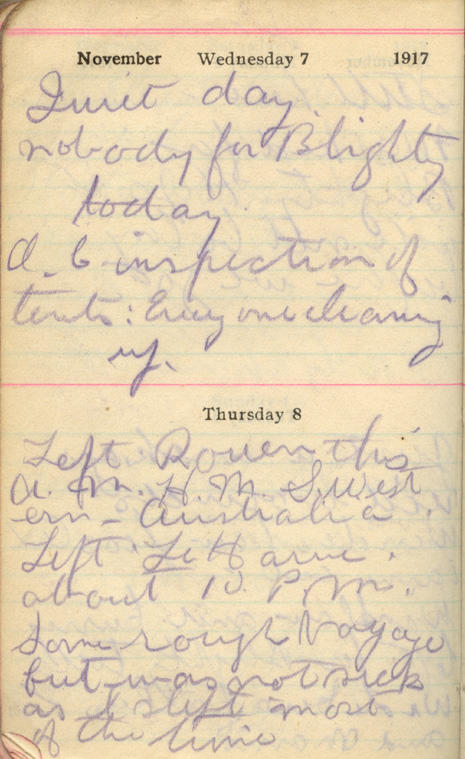 November Wednesday 7 1917
Quiet day.
nobody for Blighty
today.
O. C inspection of
tents: Everyone cleaning
up.
Thursday 8
Left Rouen this
A. M. H. M. S. West
ern - Australia.
Left Le Havre.
about 10 P. M.
Some rough Voyage
but was not sick
as I slept most
of the time